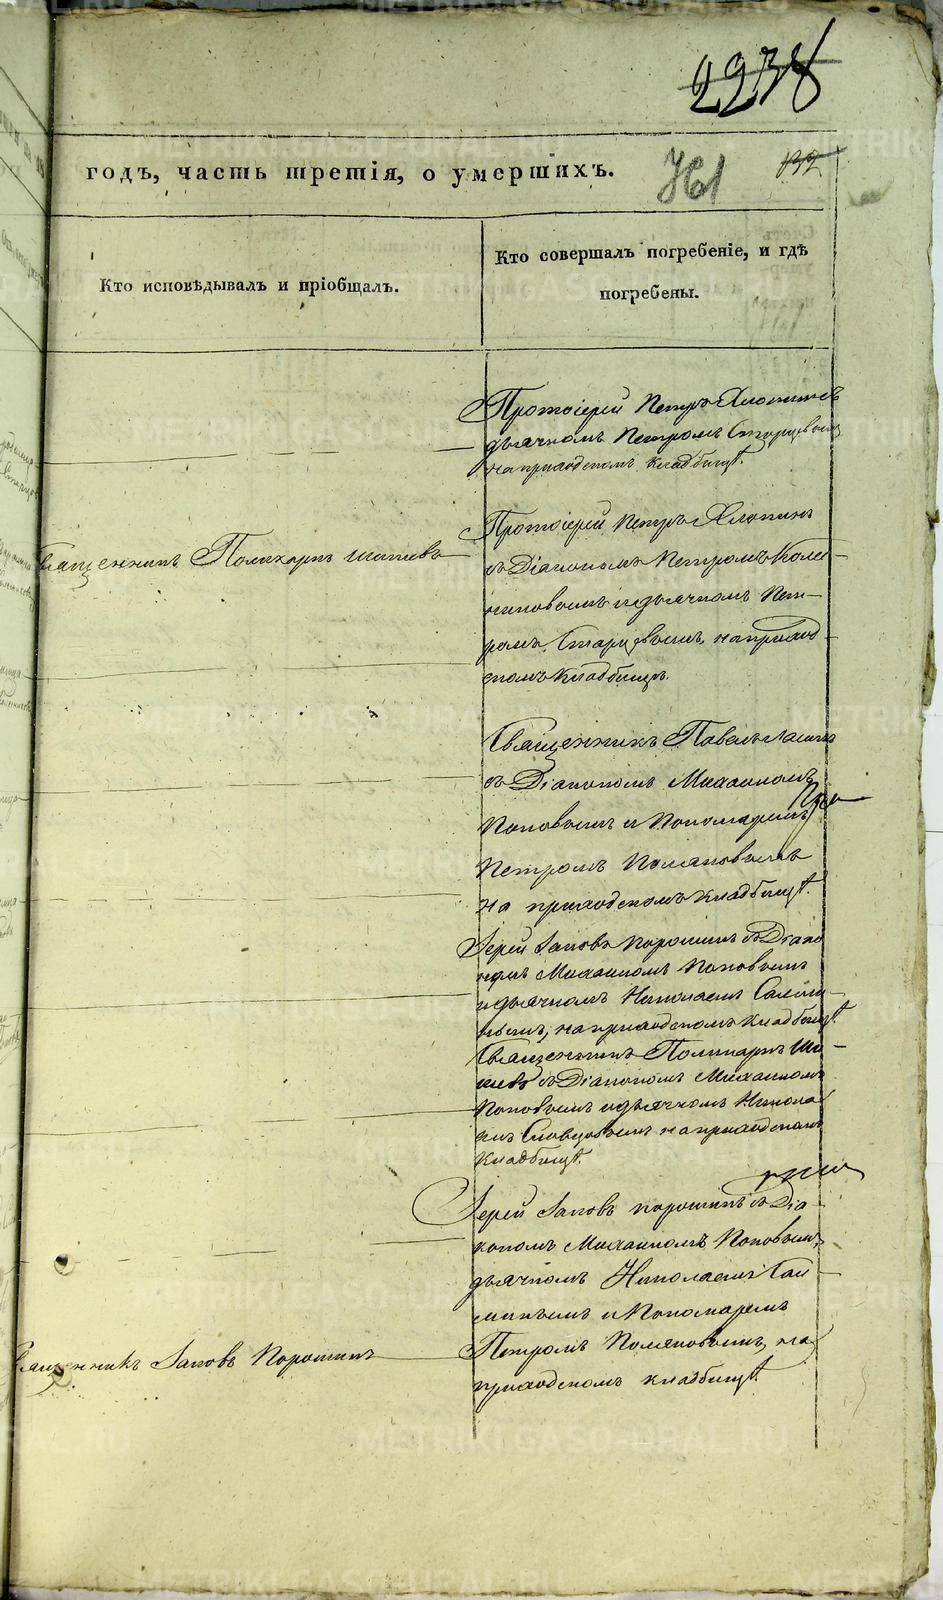 2238
годъ, часть третія, о умершихъ.
761
132
Кто исповѣдывалъ и пріобщалъ.
Кто совершалъ погребеніе, и гдѣ
погребены.
Протоіерей Петръ Хлопинъ съ
дьячкомъ Петромъ Старцовымъ
на приходскомъ кладбищѣ.
Священникъ Поликарпъ Шишевъ
Протоіерей Петръ Хлопинъ
съ Діакономъ Петромъ
и дьячкомъ Пет-
ромъ Старцовымъ, на приход-
скомъ кладбищѣ.
Священникъ Павелъ
съ Діакономъ Михаиломъ
Поповымъ и Пономаремъ
Петромъ Поляковымъ
на приходскомъ кладбищѣ.
Іерей Іаковъ Порошинъ съ Діако
номъ Михаиломъ Поповымъ
и дьячкомъ Николаемъ
на приходскомъ кладбищѣ.
Священникъ Поликарпъ Ши-
шевъ съ Діакономъ Михаиломъ
Поповымъ и дьячкомъ Никола
емъ на приходскомъ
кладбищѣ.
Іерей Іаковъ Порошинъ съ Діа-
кономъ Михаиломъ Поповымъ,
дьячкомъ Николаемъ
и Пономаремъ
Священникъ Іаковъ Порошинъ
Петромъ Поляковымъ, на
приходскомъ кладбищѣ.
METRIKI.GASO-URAL.RU